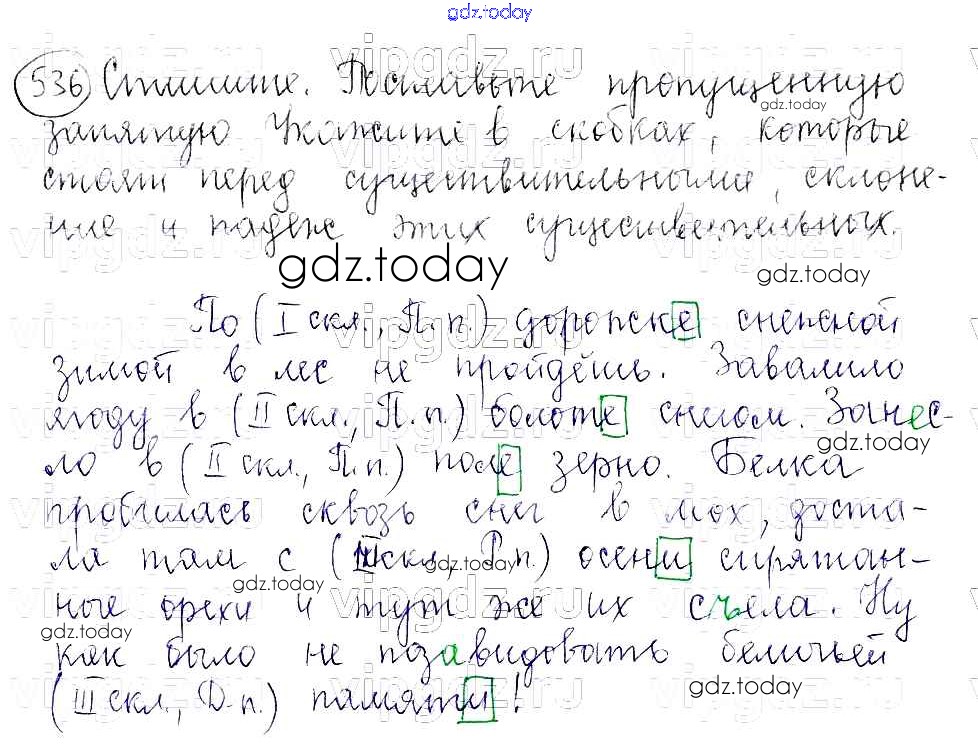 gdz.today
536 Спишите. Поставьте пропущенную
gdz.today
запятую Укажите в скобках, которые
стоят перед существительными, склоне-
ние и падеж этих существительных.
gdz.today
gdz.today
По (I скл., П. п.) дорожке снежной
зимой в лес не пройдёшь. Завалило
ягоду в (II скл., П. п.) болоте снегом. Занес-
gdz.today
ло в (II скл., П. п.) поле зерно. Белка
пробилась сквозь снег в мох, доста-
ла там с (III скл., Р. п.) осени спрятан-
gdz.today
gdz.today
ные орехи и тут же их съела. Ну
gdz.today
как было не позавидовать беличьей
(III скл., Д. п.) памяти!
gdz.today